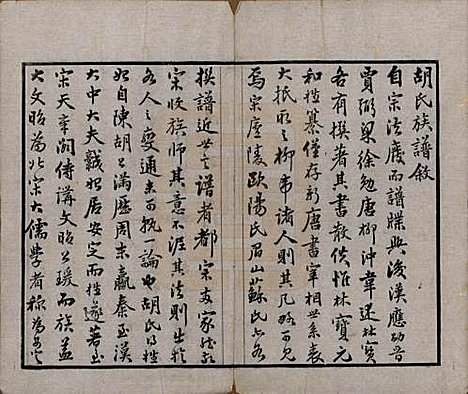 胡氏族譜敘
自宗法廢而譜牒興後漢應劭晉
賈弼梁徐勉唐柳沖韋述林寶
各有撰著其書散佚惟林寶元
和姓纂僅存新唐書宰相世系表
大抵取之柳韋諸人則其凡略可見
焉宋廬陵歐陽氏眉山蘇氏亦各
撰譜近世之譜者都宗支家然於
宗收族師其意不泥其法則出於
各人之變通未可執一論也胡氏得姓
始自陳胡公滿歷周末嬴秦至漢
大中大夫 始居安定而姓遂著至
宋天章閣侍講文昭公瑗而族益
大文昭為北宋大儒學者稱為安定